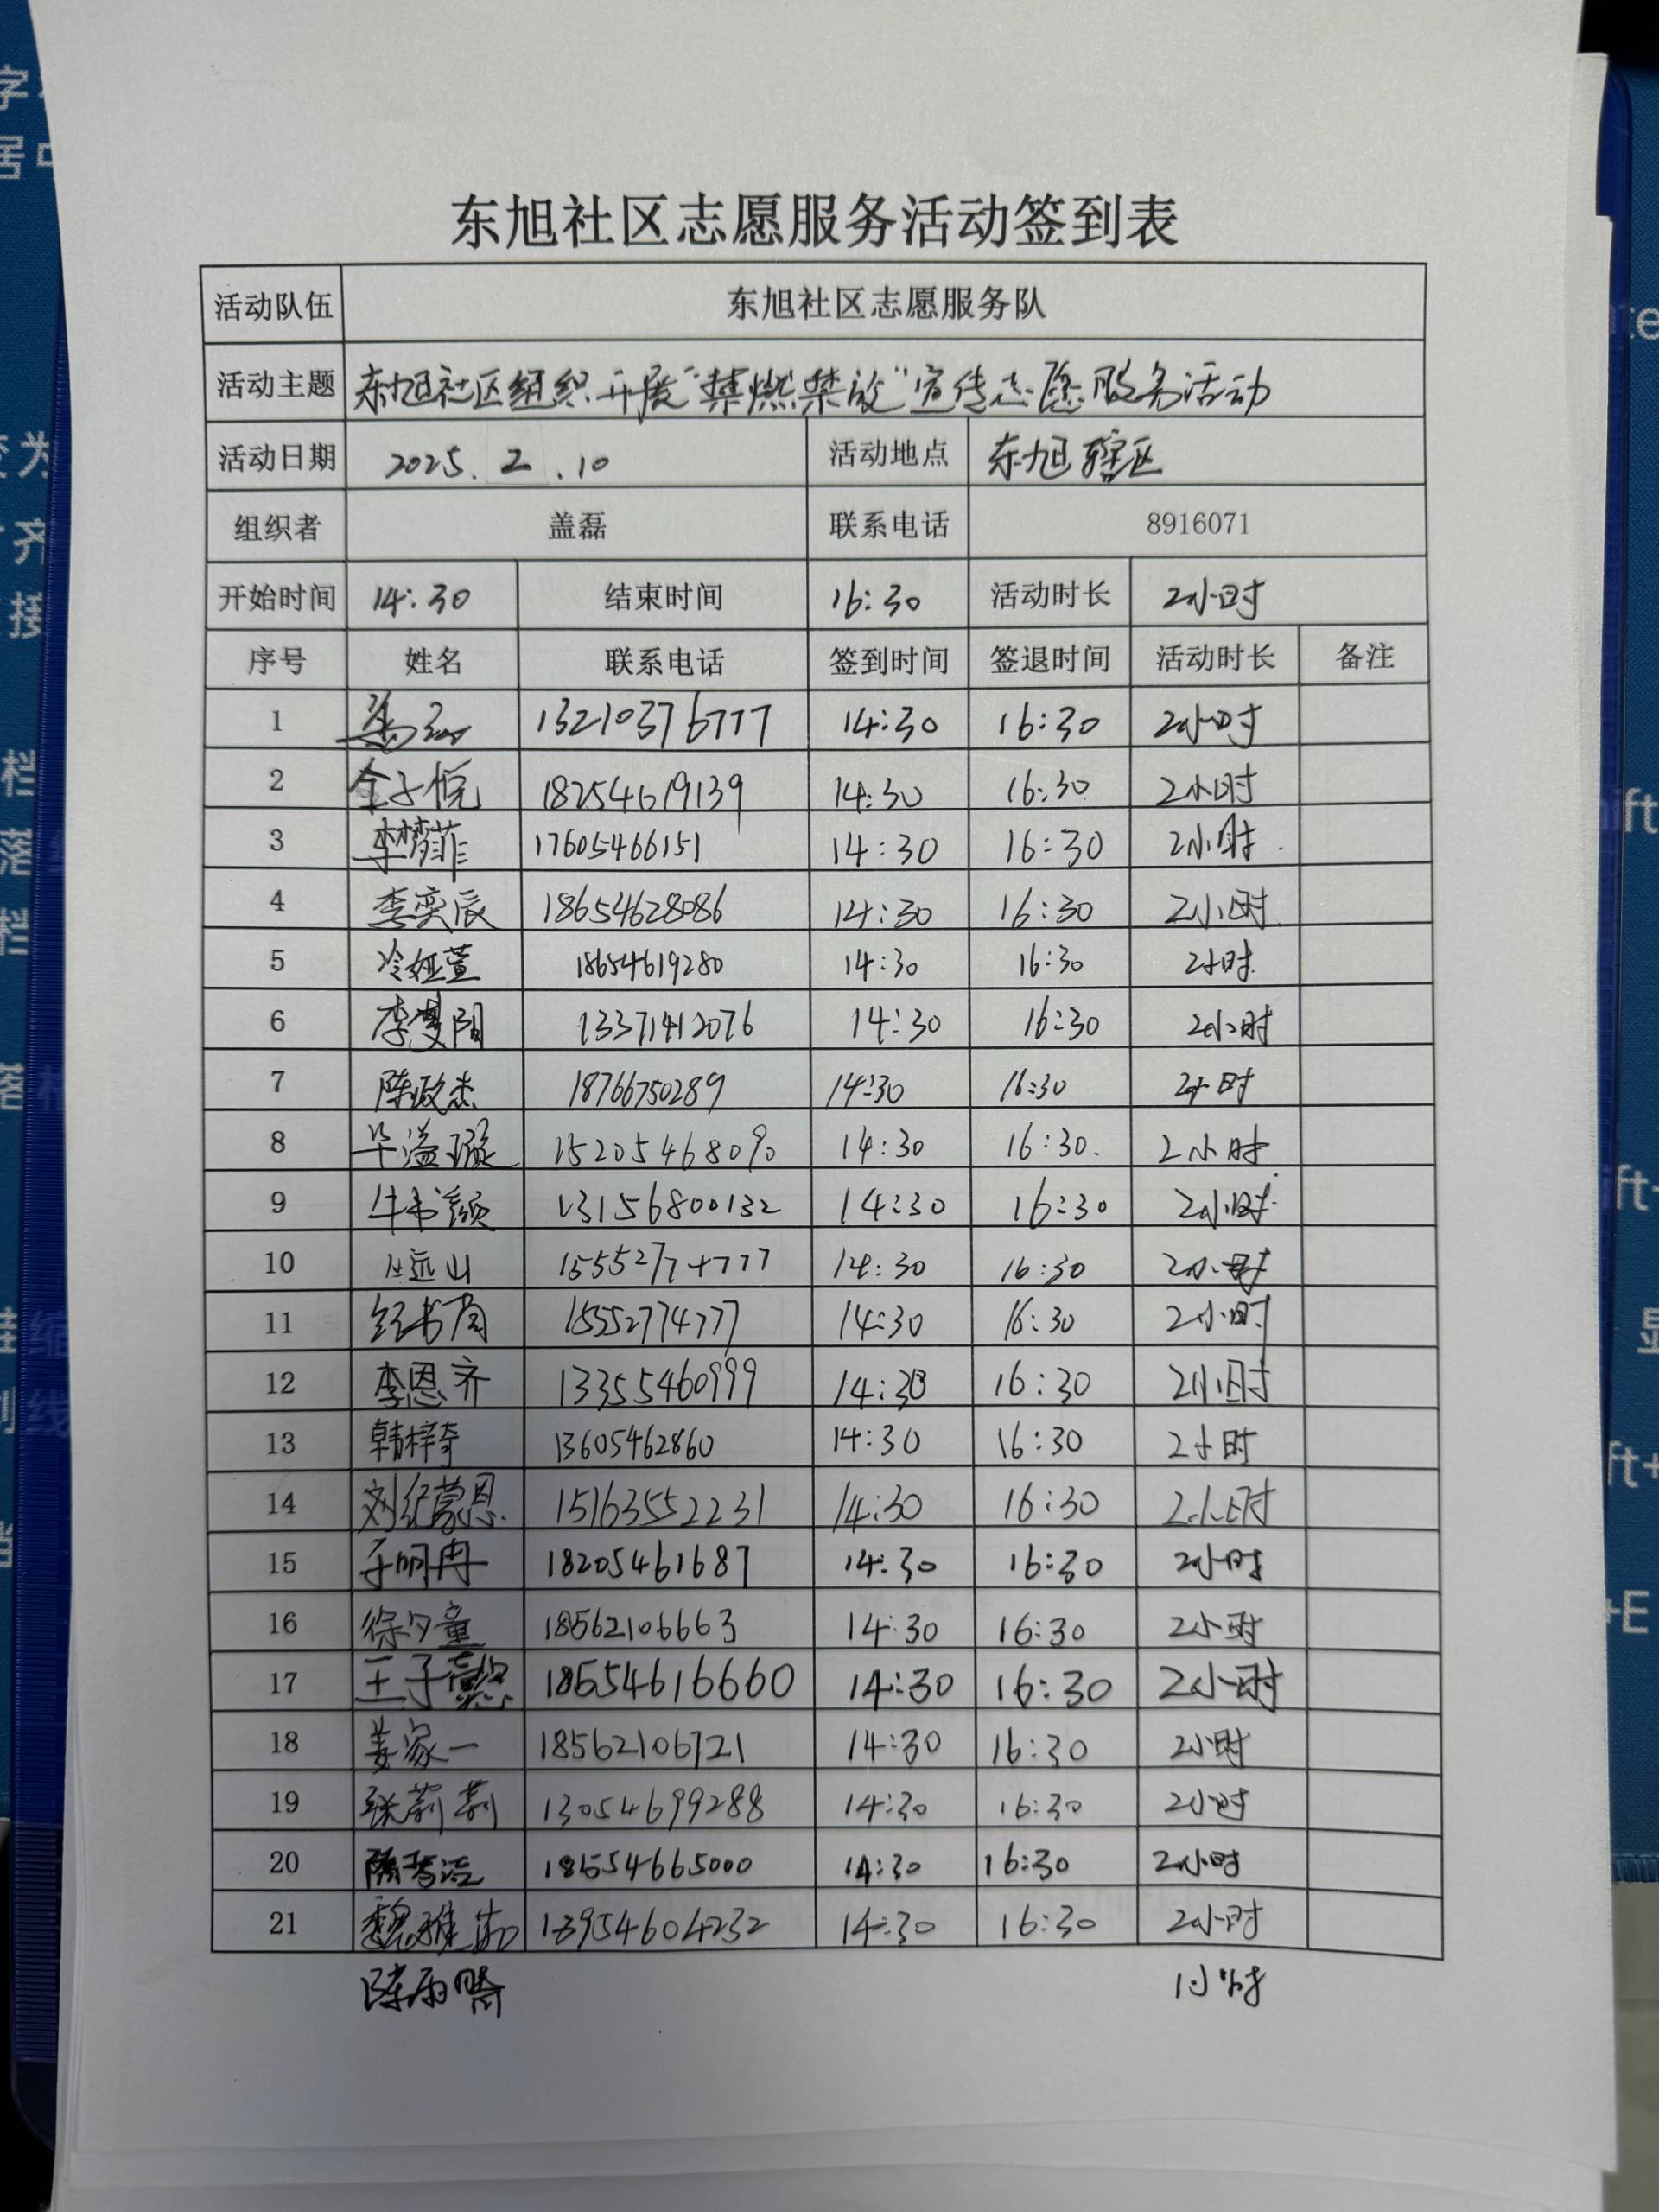 东旭社区志愿服务活动签到表
活动队伍 东旭社区志愿服务队
活动主题 东旭社区组织开展“禁燃禁放”宣传志愿服务活动
活动日期 2025.2.10 活动地点 东旭辖区
组织者 盖磊 联系电话 8916071
开始时间 14:30 结束时间 16:30 活动时长 2小时
序号 姓名 联系电话 签到时间 签退时间 活动时长 备注
1 13210376777 14:30 16:30 2小时
2 金子悦 18254619139 14:30 16:30 2小时
3 李梦菲 17605466151 14:30 16:30 2小时.
4 李奕辰 18654628086 14:30 16:30 2小时.
5 冷娅萱 18654619280 14:30 16:30 2小时.
6 李曼阁 13371412076 14:30 16:30 2小时
7 陈政杰 18766750289 14:30 16:30 2小时
8 毕溢璇 15205468090 14:30 16:30. 2小时
9 牛书颜 13156800132 14:30 16:30 2小时.
10 远山 15552774777 14:30 16:30 2小时
11 15552774777 14:30 16:30 2小时
12 李恩齐 13355460999 14:30 16:30 2小时
13 韩梓奇 13605462860 14:30 16:30 2小时
14 刘纪蒙恩. 15163552231 14:30 16:30 2小时
15 于明冉 18205461687 14:30 16:30 2小时
16 徐夕童 18562106663 14:30 16:30 2小时
17 王子懿 18654616660 14:30 16:30 2小时
18 姜家一 18562106721 14:30 16:30 2小时
19 张莉莉 13054699288 14:30 16:30 2小时
20 18654665000 14:30 16:30 2小时
21 魏雅茹 13954604232 14:30 16:30 2小时
陈雨 1小时